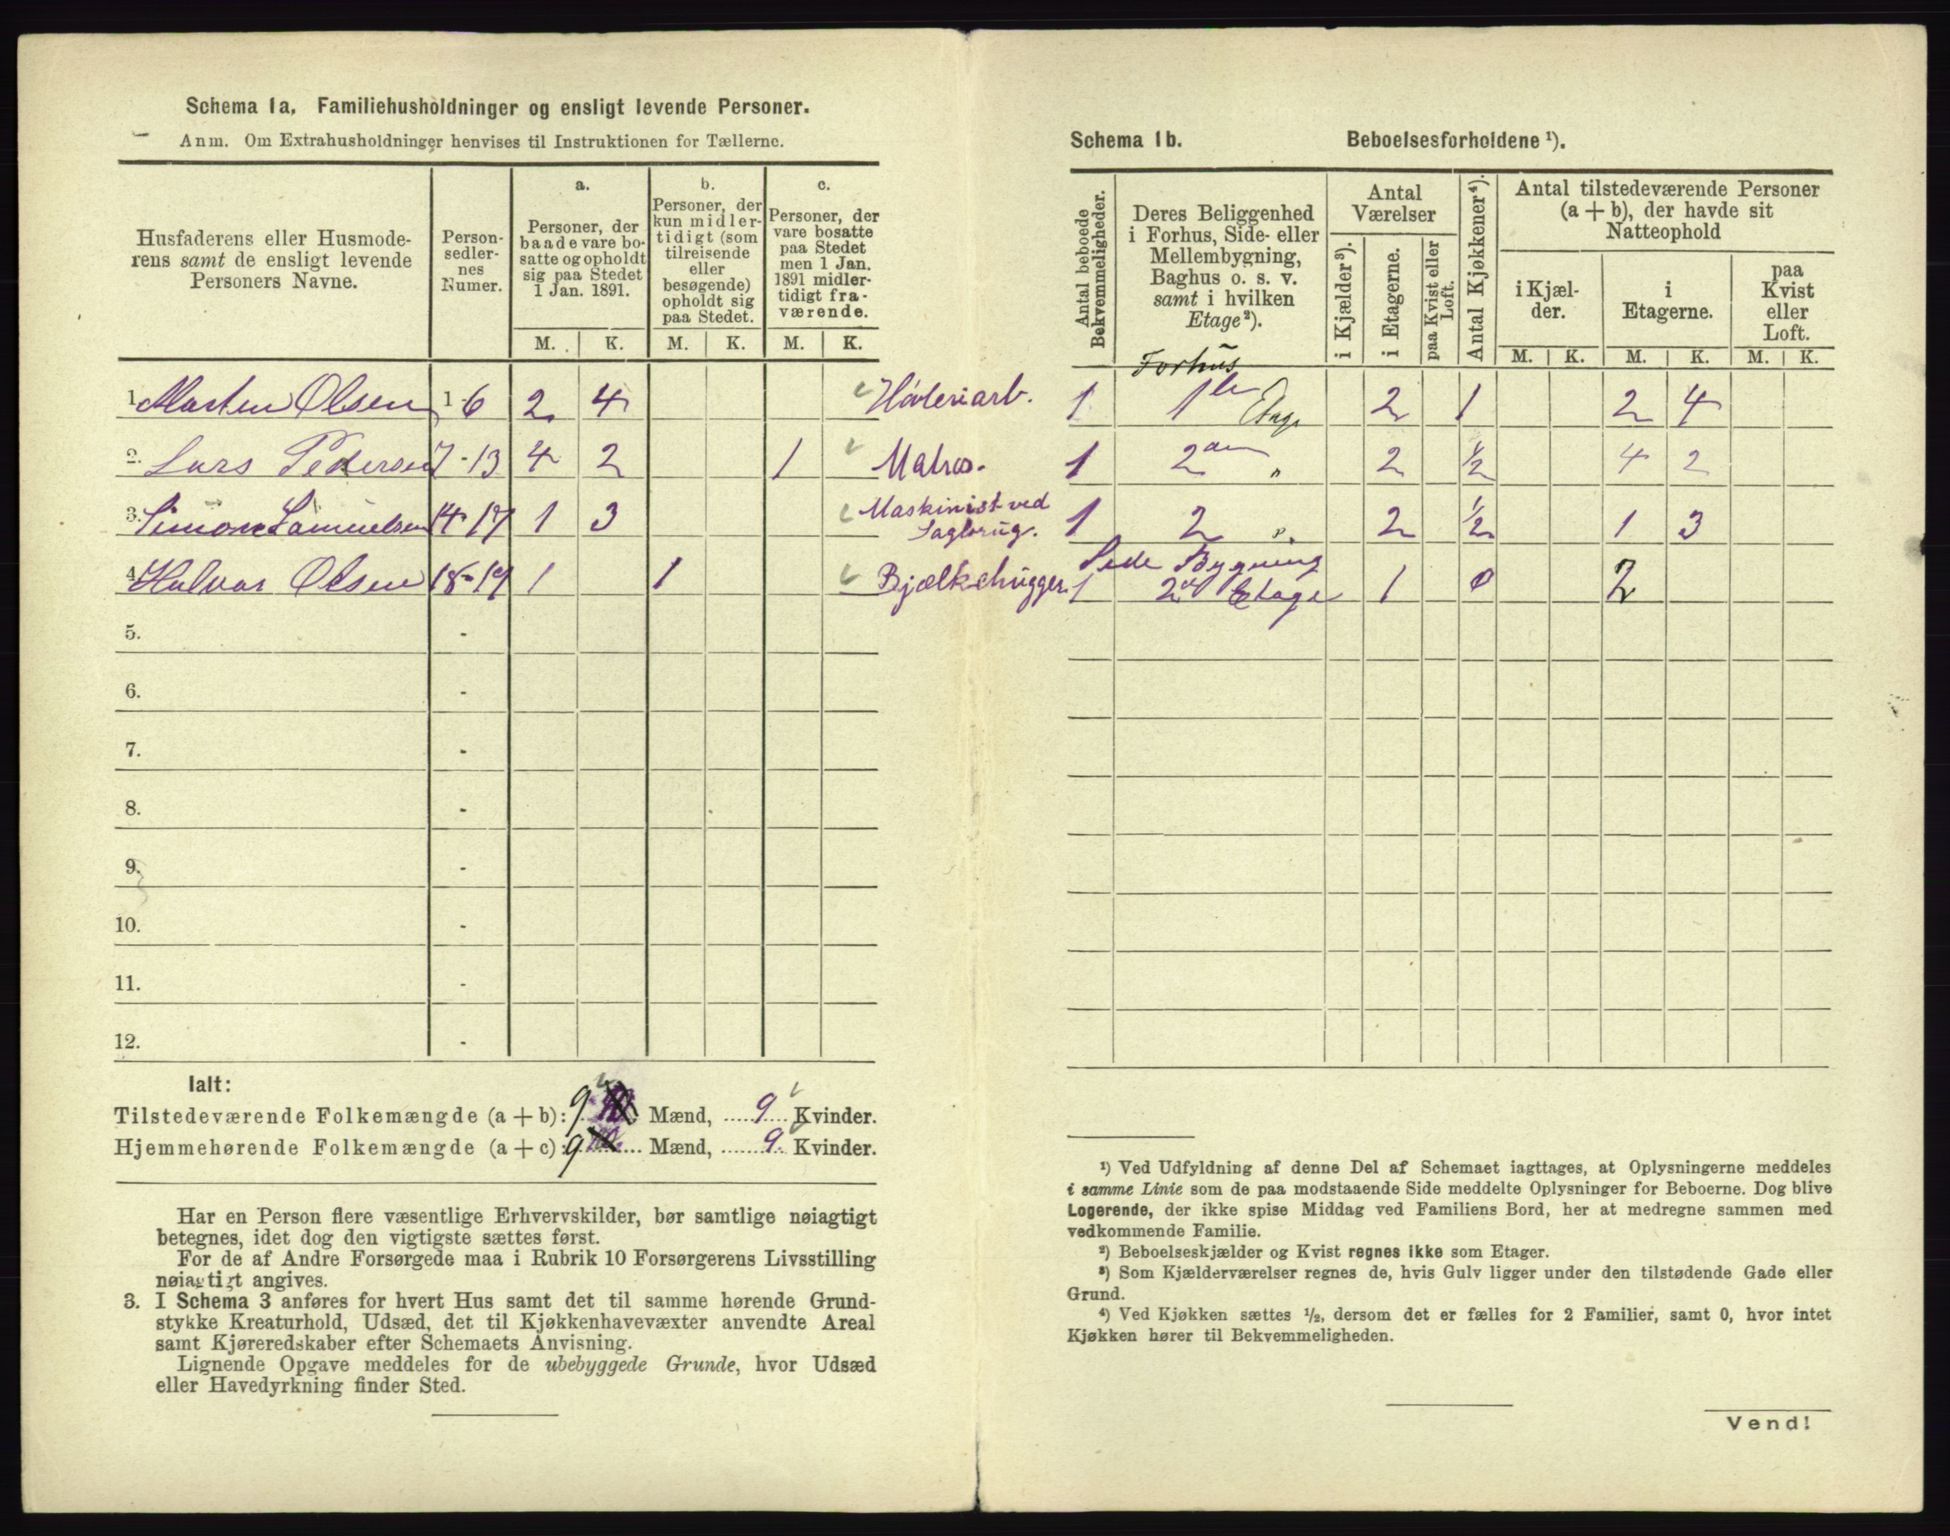 Schema 1a. Familiehusholdninger og ensligt levende Personer.
Anm. Om Extrahusholdninger henvises til Instruktionen for Tællerne.
Husfaderens eller Husmode-
rens samt de ensligt levende
Personers Navne.
Person-
sedler-
nes
Numer.
a.
Personer, der
baade vare bo-
satte og opholdt
sig paa Stedet
1 Jan. 1891.
b.
Personer, der
kun midler-
tidigt (som
tilreisende
eller
besøgende)
opholdt sig
paa Stedet.
c.
Personer, der
vare bosatte
paa Stedet
men 1 Jan.
1891 midler-
tidigt fra-
værende.
M. K. M. K. M. K.
1. Marten Olsen 1-6 2 4 Høvleriarb.
2. Lars Pedersen 7-13 4 2 1 Matros.
3. Simon Samuelsen 14-17 1 3 Maskinist ved
Sagbrug.
4. Halvor Olsen 18-19 1 1 Bjælkehugger
5. -
6. -
7. -
8. -
9. -
10. -
11. -
12. -
Ialt:
Tilstedeværende Folkemængde (a + b): 9 Mænd, 9 Kvinder.
Hjemmehørende Folkemængde (a + c): 9 Mænd, 9 Kvinder.
Har en Person flere væsentlige Erhvervskilder, bør samtlige nøiagtigt
betegnes, idet dog den vigtigste sættes først.
For de af Andre Forsørgede maa i Rubrik 10 Forsørgerens Livsstilling
nøiagtigt angives.
3. I Schema 3 anføres for hvert Hus samt det til samme hørende Grund-
stykke Kreaturhold, Udsæd, det til Kjøkkenhavevæxter anvendte Areal
samt Kjøreredskaber efter Schemaets Anvisning.
Lignende Opgave meddeles for de ubebyggede Grunde, hvor Udsæd
eller Havedyrkning finder Sted.
Schema 1b. Beboelsesforholdene ¹).
Antal beboede
Bekvemmeligheder.
Deres Beliggenhed
i Forhus, Side- eller
Mellembygning,
Baghus o. s. v.
samt i hvilken
Etage²).
Antal
Værelser
i Kjælder³).
i Etagerne.
paa Kvist eller
Loft.
Antal Kjøkkener⁴).
Antal tilstedeværende Personer
(a + b), der havde sit
Natteophold
i Kjæl-
der.
i
Etagerne.
paa
Kvist
eller
Loft.
M. K. M. K. M. K.
Forhus
1 1ste Etage 2 1 2 4
1 2den " 2 ½ 4 2
1 2 " 2 ½ 1 3
Side Bygning
1 2d Etage 1 0 2
¹) Ved Udfyldning af denne Del af Schemaet iagttages, at Oplysningerne meddeles
i samme Linie som de paa modstaaende Side meddelte Oplysninger for Beboerne. Dog blive
Logerende, der ikke spise Middag ved Familiens Bord, her at medregne sammen med
vedkommende Familie.
²) Beboelseskjælder og Kvist regnes ikke som Etager.
³) Som Kjælderværelser regnes de, hvis Gulv ligger under den tilstødende Gade eller
Grund.
⁴) Ved Kjøkken sættes ½, dersom det er fælles for 2 Familier, samt 0, hvor intet
Kjøkken hører til Bekvemmeligheden.
Vend!